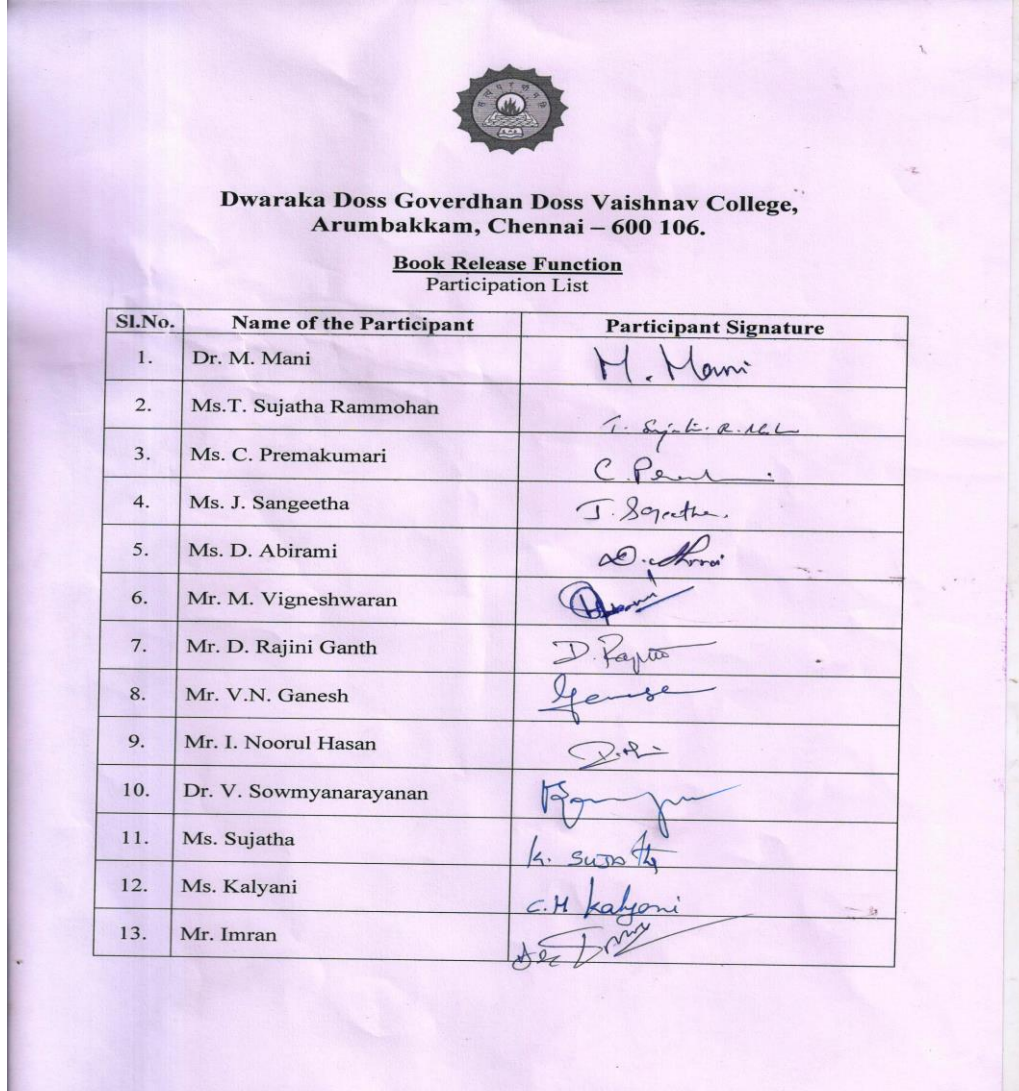 Dwaraka Doss Goverdhan Doss Vaishnav College,
Arumbakkam, Chennai – 600 106.
Book Release Function
Participation List
Sl.No. Name of the Participant Participant Signature
1. Dr. M. Mani M. Mani
2. Ms.T. Sujatha Rammohan
3. Ms. C. Premakumari
4. Ms. J. Sangeetha
5. Ms. D. Abirami
6. Mr. M. Vigneshwaran
7. Mr. D. Rajini Ganth
8. Mr. V.N. Ganesh
9. Mr. I. Noorul Hasan
10. Dr. V. Sowmyanarayanan
11. Ms. Sujatha
12. Ms. Kalyani C.H kalyani
13. Mr. Imran